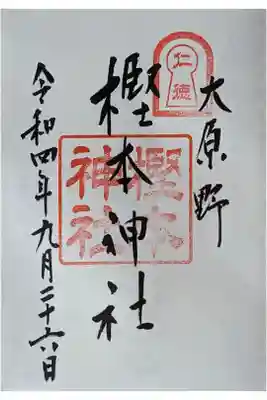 仁徳
大原野
樫本神社
樫本神社
令和四年九月二十六日